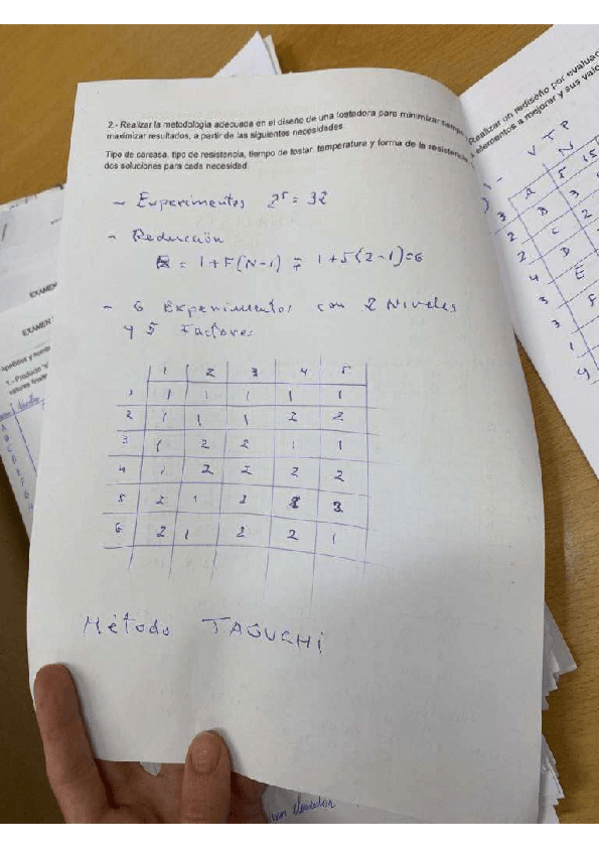 2.- Realizar la metodología adecuada en el diseño de una tostadora para minimizar tiempo
maximizar resultados, a partir de las siguientes necesidades
Tipo de carcasa, tipo de resistencia, tiempo de tostar, temperatura y forma de la resistencia
dos soluciones para cada necesidad.
- Experimentos 2⁵ = 32
- Reducción
= 1+F(N-1) = 1+5(2-1)=6
- 6 Experimentos con 2 Niveles
y 5 Factores
1 2 3 4 5
1 1 1 1 1 1
2 1 1 1 2 2
3 1 2 2 1 1
4 1 2 2 2 2
5 2 1 2
6 2 1 2 2 1
Método TAGUCHI
Realizar un rediseño por evaluar
elementos a mejorar y sus valo
V T P
N
3 A 5 15
2 B 3
2 C 2
4 D
3 E
3
1
9
EXAMEN
EXAMEN
Apellidos y nomb
1.- Producto
valores finale
A
B
C